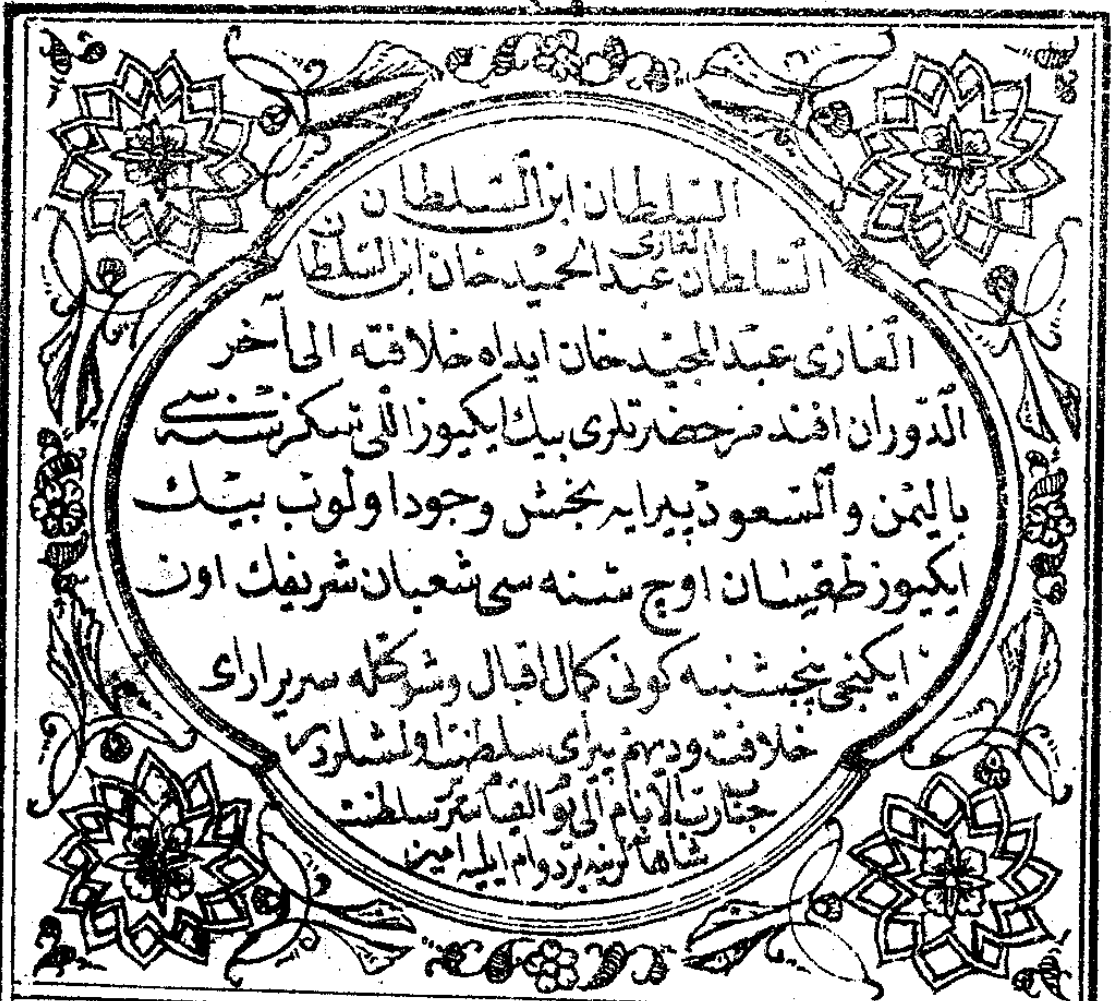 السلطان ابن السلطان
السلطان الغازى عبد الحميد خان ابن السلطان
الغازى عبد المجيد خان ايداه خلافته الى آخر
الدوران افندمز حضرتلرى بيك ايكيوز اللى سكز سنه سى
باليمن والسعود پيرايه بخش وجود اولوب بيك
ايكيوز طقسان اوچ سنه سى شعبان شريفك اون
ايكنجى پنجشنبه كونى كمال اقبال وشوكتله سريراراى
خلافت وديهيم پيراى سلطنت اولمشلردر
جناب رب الانام الى يوم القيام سرير سلطنت
شاهانه لرينه بردوام ايليه امين